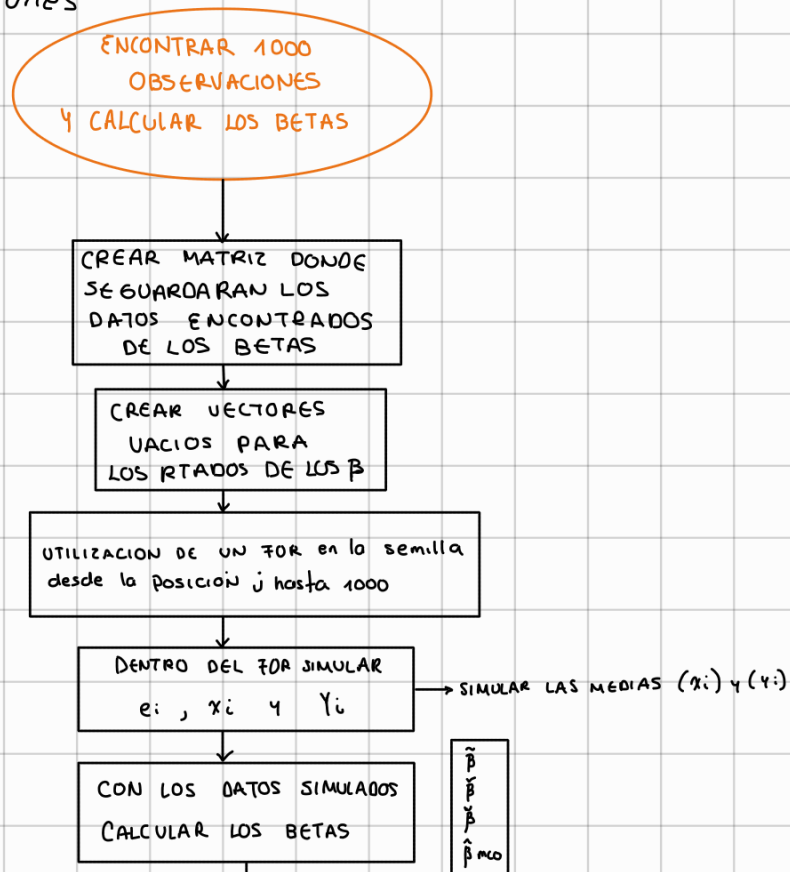 ENCONTRAR 1000
OBSERVACIONES
Y CALCULAR LOS BETAS
CREAR MATRIZ DONDE
SE GUARDARAN LOS
DATOS ENCONTRADOS
DE LOS BETAS
CREAR VECTORES
VACIOS PARA
LOS RTADOS DE LOS β
UTILIZACION DE UN FOR en la semilla
desde la posición j hasta 1000
DENTRO DEL FOR SIMULAR
ei , xi y Yi
SIMULAR LAS MEDIAS (xi) y (Yi)
CON LOS DATOS SIMULADOS
CALCULAR LOS BETAS
β̃
β̆
β̌
β̂ MCO